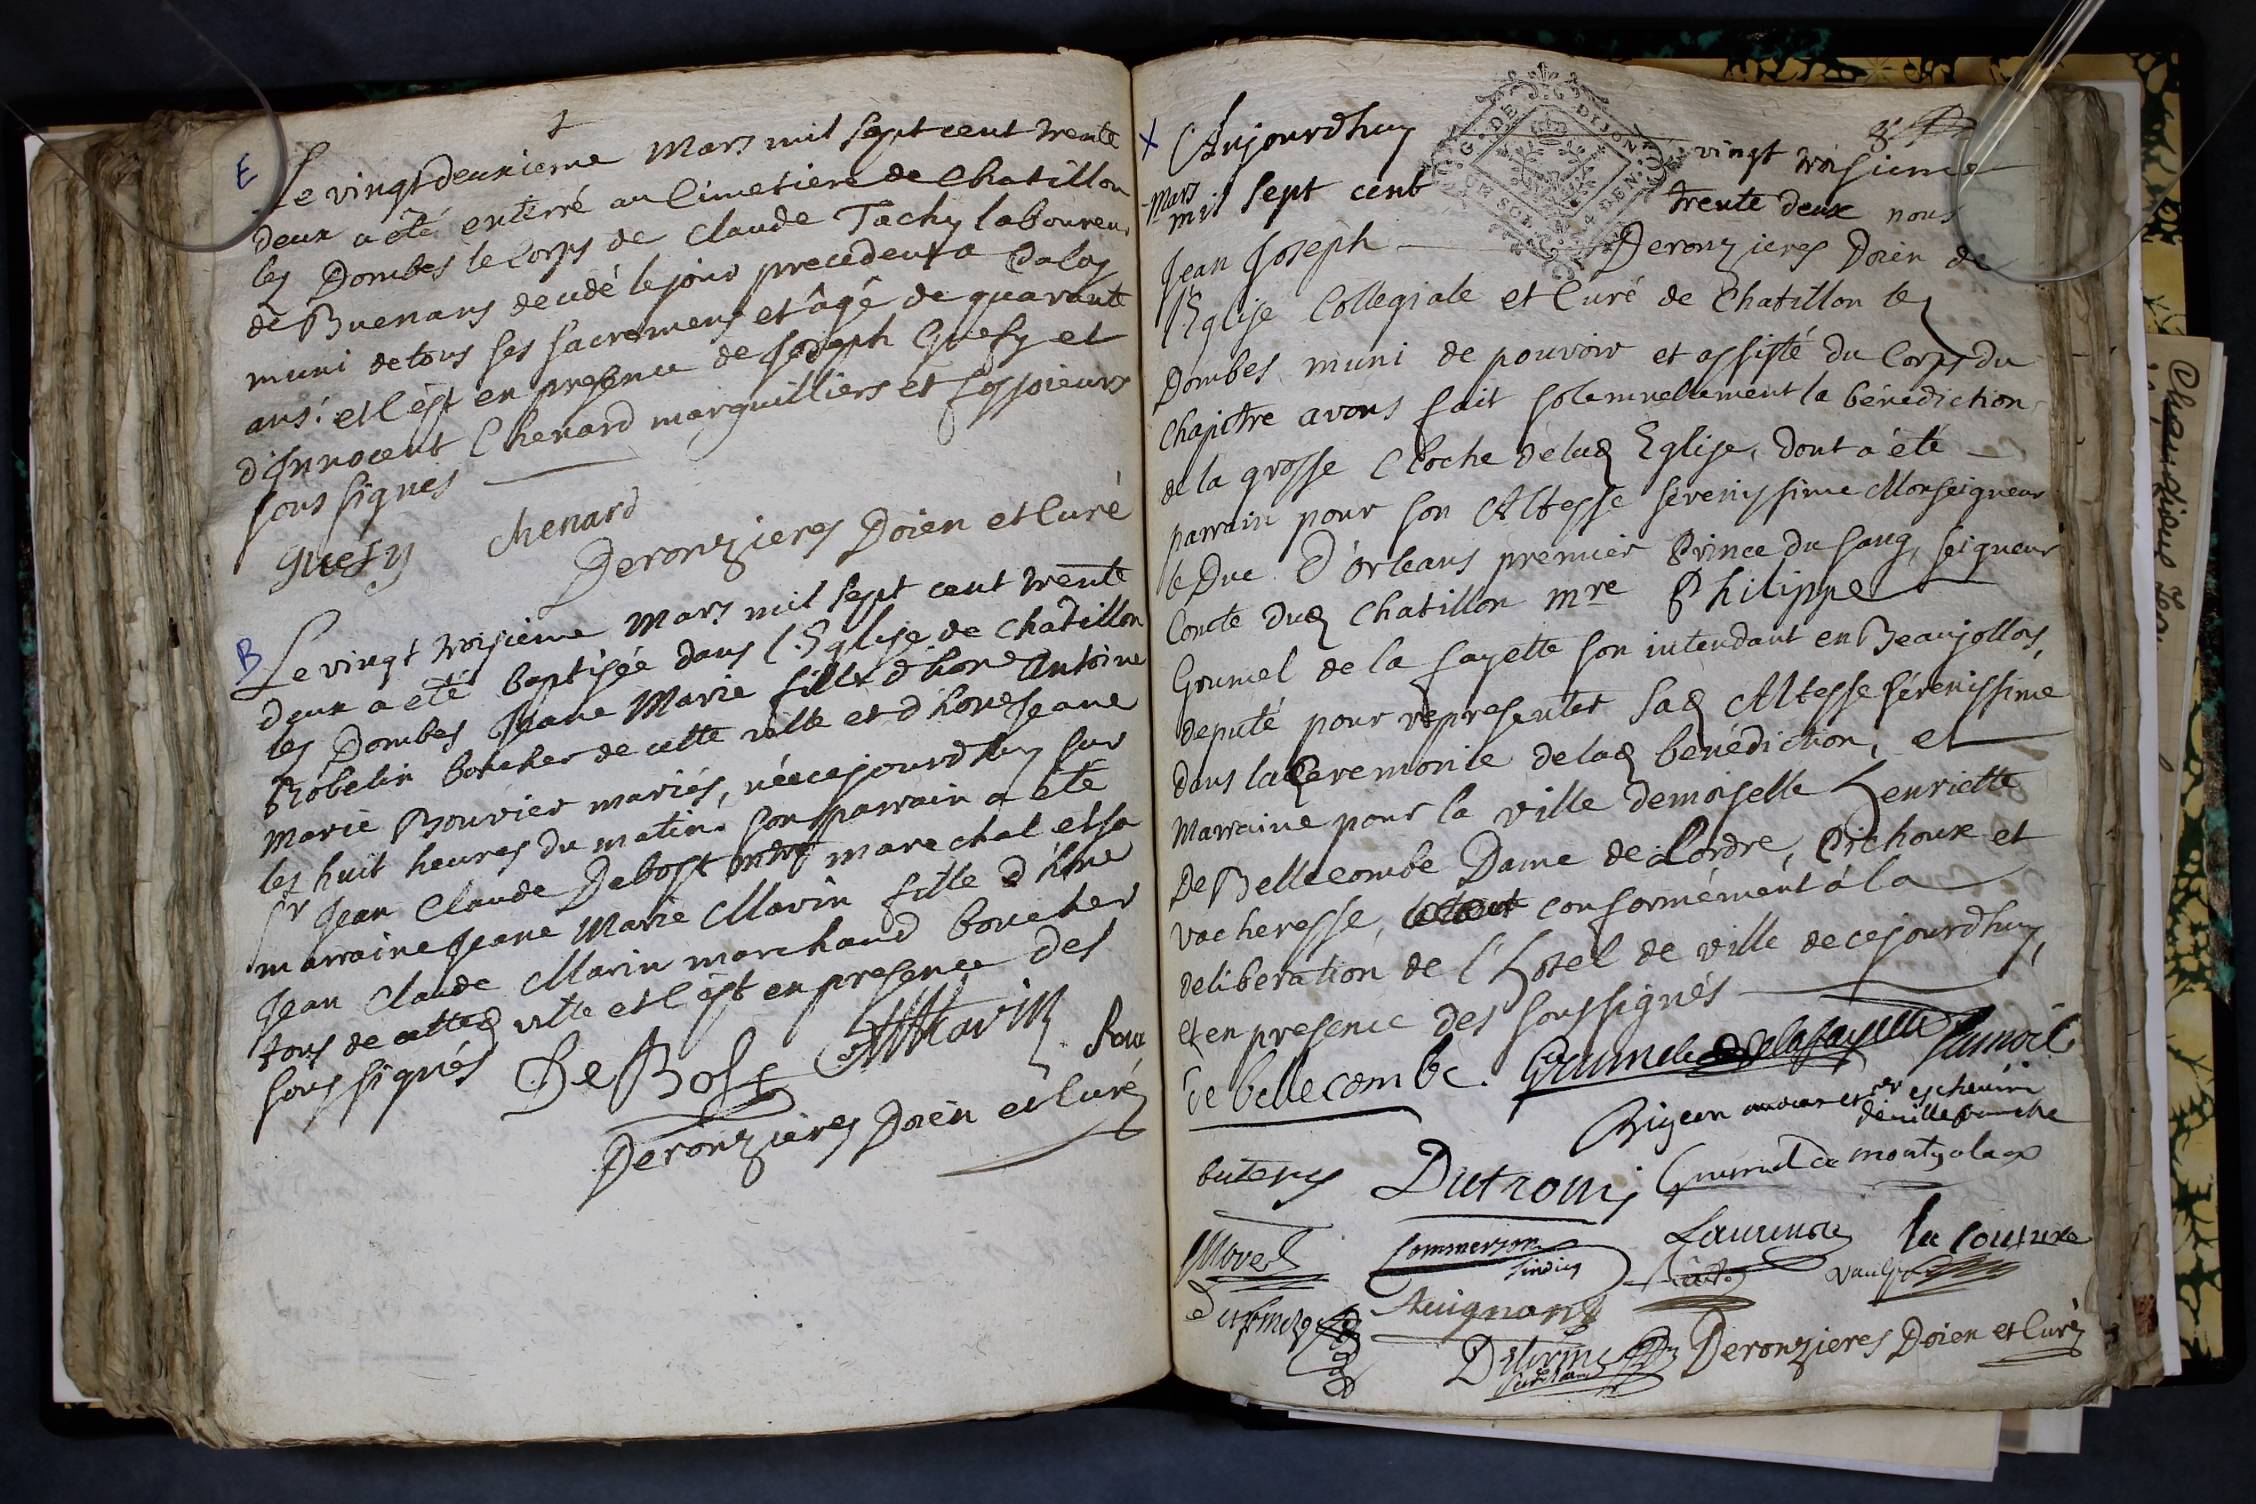 E
Le vingt deuxieme Mars mil sept cent trente
deux a été enterré au Cimetiere de Chatillon
les Dombes le Corps de Claude Tachy laboureur
de Buenans decedé le jour precedent a
muni de tous ses sacremens et âgé de quarante
ans: et l'est en presence de Joseph Guesy et
d'Innocent Chenard marguilliers et fossoieurs
sous signés
guesy chenard
Deronzieres Doien et Curé
B
Le vingt troisieme Mars mil sept cent trente
deux a eté baptisée dans l'Eglise de Chatillon
les Dombes Jeane Marie fille d'hone Antoine
Robelin boucher de cette ville et d'hone Jeane
Marie Bouvier mariés, née cejourdhuy sur
les huit heures du matin. Son parrain a été
Sr Jean Claude Debost mtre marechal et sa
marraine Jeane Marie Marin fille d'hone
Jean Claude Marin marchand boucher
tous de cette d ville et l'est en presence des
sous signés
DeBost Marin
Deronzieres Doien et Curé
x Aujourdhuy vingt troisieme
Mars
mil sept cent trente deux nous
G. DE DIJON
UN SOL 4 DEN.
Jean Joseph Deronzieres Doien de
l'Eglise Collegiale et Curé de Chatillon les
Dombes muni de pouvoir et assisté du Corps du
Chapitre avons fait solemnellement la bénédiction
de la grosse Cloche de lad Eglise, dont a été
parrain pour son Altesse serenissime Monseigneur
le Duc D'Orleans premier Prince du sang, seigneur
Comte dud Chatillon mre Philippe
Grumel de la fayette son intendant en Beaujollois,
deputé pour representer sad Altesse sérenissime
dans la Ceremonie de lad bénédiction, et
marraine pour la ville demoiselle henriette
De Bellecombe Dame de Lordre, Pichoux et
vacheresse, le tout conformément à la
deliberation de l'hotel de ville de cejourdhuy,
et en presence des soussignés
de bellecombe. Grumel de lafayette
avocat et escheuin
de villefranche
butery Dutroni Grumel de montgalaux
Morel Commerson Laurenson la Couture
sindicq
Auignant
Deronzieres Doien et Curé